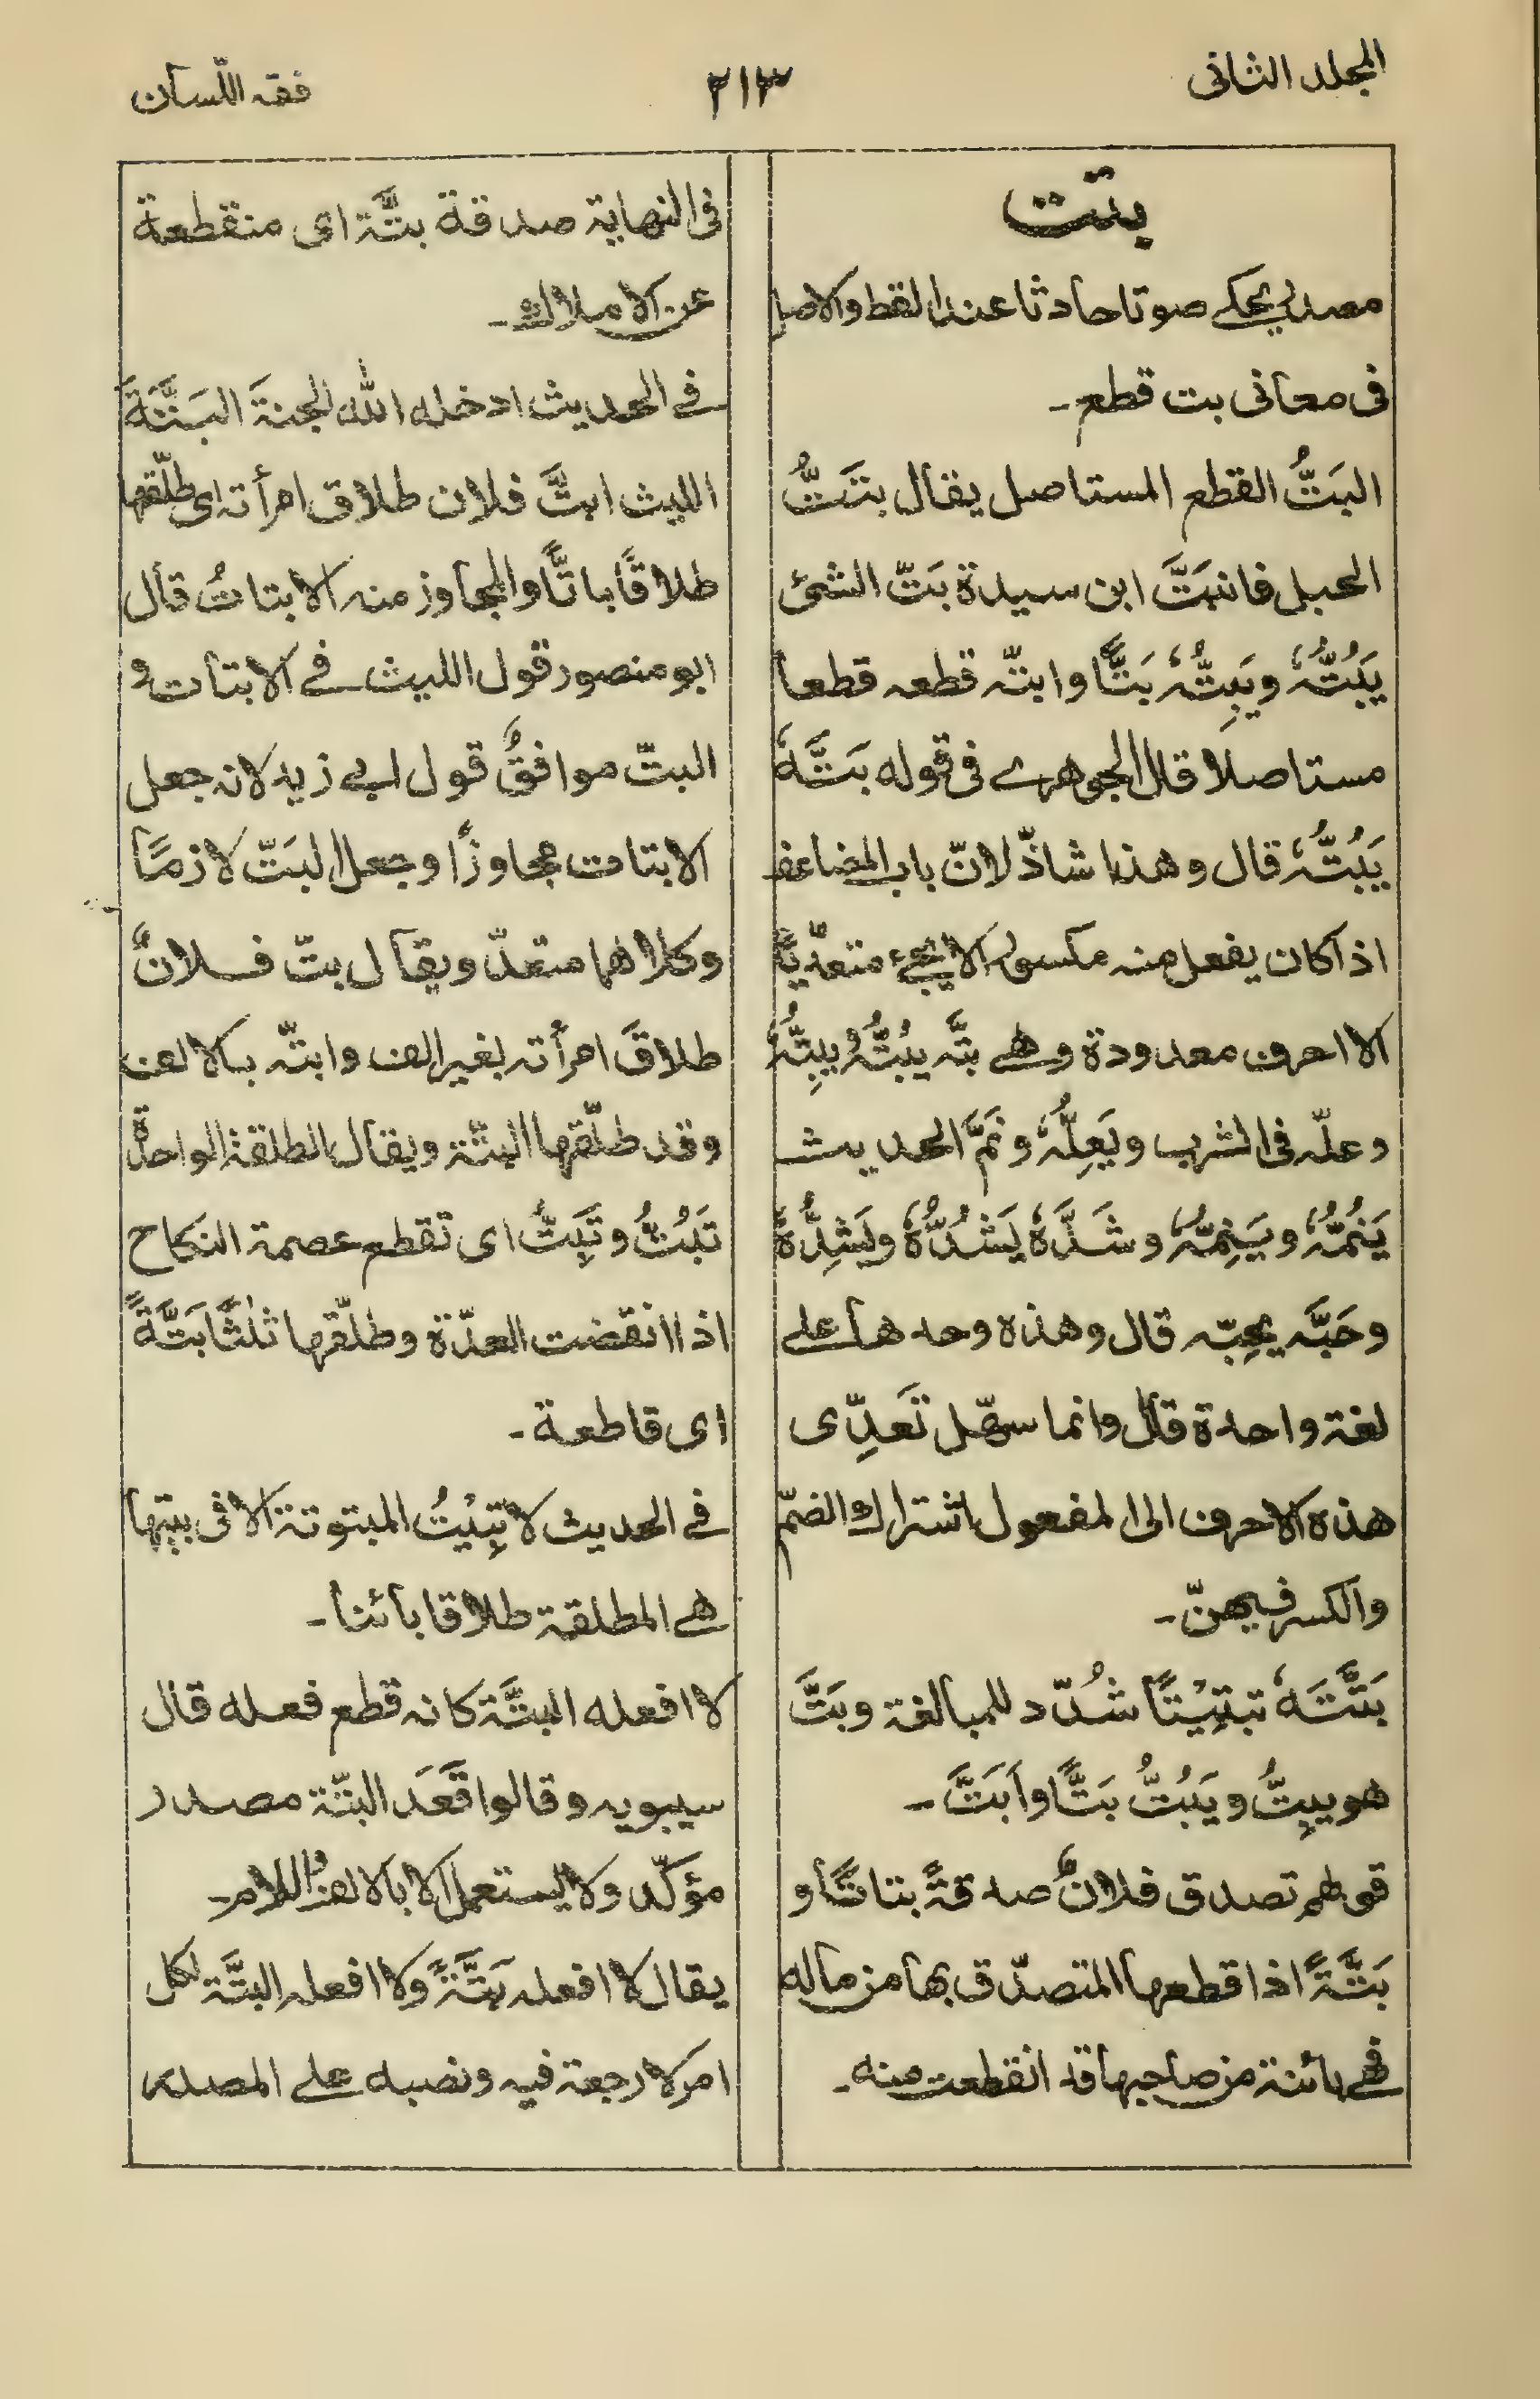 المجلد الثانی
٢١٣
فقه اللّسان
بتت
مصدر یحکی صوتا حادثا عند القط والاصل
فی معانی بت قطع۔
البَتُّ القطع المستاصل یقال بتَتُّ
الحبل فانبَتَّ ابن سیدة بَتّ الشئ
یَبُتُّهٗ ویَبِتُّهٗ بَتًّا وابتّه قطعه قطعا
مستاصلا قال الجوهری فی قوله بَتَّهٗ
یَبُتُّهٗ قال وهذا شاذّ لانّ باب المضاعف
اذا کان یفعل منه مکسورا لا یجیء متعدّیًا
الا احرف معدودة وهی بتَّه یبُتُّهٗ یبِتُّهٗ
وعلّه فی الشرب ویَعِلُّهٗ ونَمَّ الحدیث
یَنُمُّهٗ ویَنِمُّهٗ وشَدَّهٗ یَشُدُّهٗ ویَشِدُّهٗ
وحَبَّه یحِبّه قال وهذه وحدها علی
لغة واحدة قال وانما سهّل تَعَدِّی
هذه الاحرف الی المفعول اشتراك الضمّ
والکسر فیهنّ۔
بَتَّتَهٗ تبتِیْتًا شُدّد للمبالغة وبَتَّ
هو یبِتُّ ویَبُتُّ بَتًّا واَبَتَّ۔
قولهم تصدق فلانٌ صدقةً بتاتًا و
بَتَّةً اذا قطعها المتصدّق بها من ماله
فهی بائنة من صاحبها قد انقطعت منه۔
فی النهایة صدقة بتَّة ای منقطعة
عن الاملاك۔
فی الحدیث ادخله الله الجنةَ البَتَّةَ
اللیث ابتَّ فلان طلاق امرأته ای طلّقها
طلاقًا باتًّا والمجاوز منه الابتاتُ قال
ابو منصور قول اللیث فی الابتات و
البتّ موافقٌ قول ابی زید لانه جعل
الابتات مجاوزًا وجعل البَتّ لازمًا
وکلاهما متعدّ ویقال بتّ فلانٌ
طلاقَ امرأته بغیر الف وابتّه بالالف
وقد طلّقها البتّة ویقال الطلقة الواحدة
تَبُتُّ وتَبِتُّ ای تقطع عصمة النکاح
اذا انقضت العدّة وطلّقها ثلٰثًا بَتَّةً
ای قاطعة۔
فی الحدیث لا تبِیْتُ المبتوتة الا فی بیتها
هی المطلقة طلاقا بائنا۔
لا افعله البتَّة کانه قطع فعله قال
سیبویه وقالوا قَعَدَ البتّة مصدر
مؤکّد ولا یستعمل الا بالالف واللام۔
یقال لا افعله بَتَّةً ولا افعله البتَّة لکل
امر لا رجعة فیه ونصبه علی المصدر